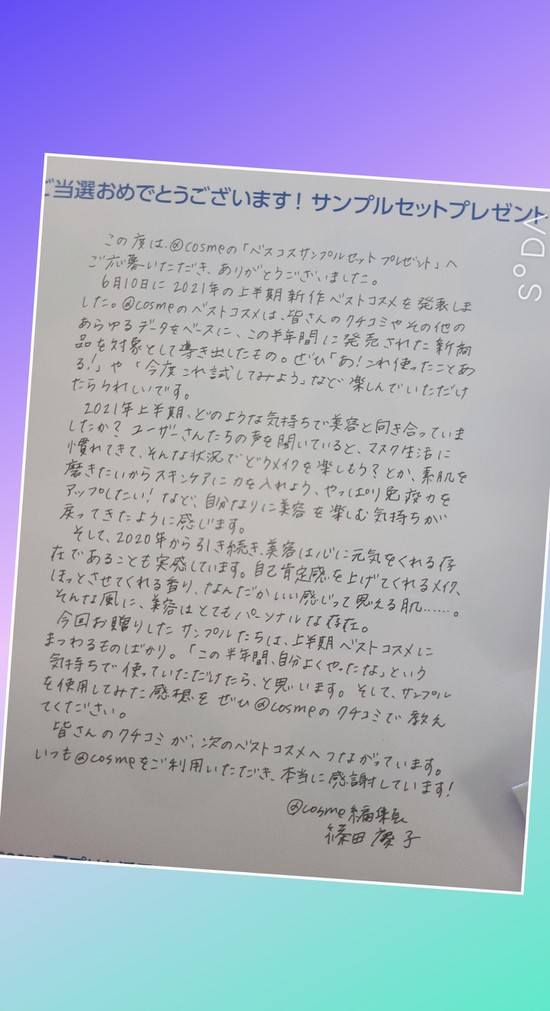 ご当選おめでとうございます! サンプルセットプレゼント
SODA
この度は、@cosmeの「ベスコスサンプルセット プレゼント」へ
ご応募いただき、ありがとうございました。
6月10日に2021年の上半期新作ベストコスメを発表しま
した。@cosmeのベストコスメは、皆さんのクチコミやその他の
あらゆるデータをベースに、この半年間に発売された新商
品を対象として導き出したもの。ぜひ「あ!これ使ったことあ
る!」や「今度これ試してみよう」など楽しんでいただけ
たらうれしいです。
2021年上半期、どのような気持ちで美容と向き合っていま
したか? ユーザーさんたちの声を聞いていると、マスク生活に
慣れてきて、そんな状況でどうメイクを楽しもう?とか、素肌を
磨きたいからスキンケアに力を入れよう、やっぱり免疫力を
アップしたい!など、自分なりに美容を楽しむ気持ちが
戻ってきたように感じます。
そして、2020年から引き続き、美容は心に元気をくれる存
在であることも実感しています。自己肯定感を上げてくれるメイク、
ほっとさせてくれる香り、なんだかいい感じって思える肌……。
そんな風に、美容はとてもパーソナルな存在。
今回お贈りしたサンプルたちは、上半期ベストコスメに
まつわるものばかり。「この半年間、自分よくやったな」という
気持ちで使っていただけたら、と思います。そして、サンプル
を使用してみた感想をぜひ@cosmeのクチコミで教え
てください。
皆さんのクチコミが、次のベストコスメへつながっています。
いつも@cosmeをご利用いただき、本当に感謝しています!
@cosme編集長
篠田 慶子